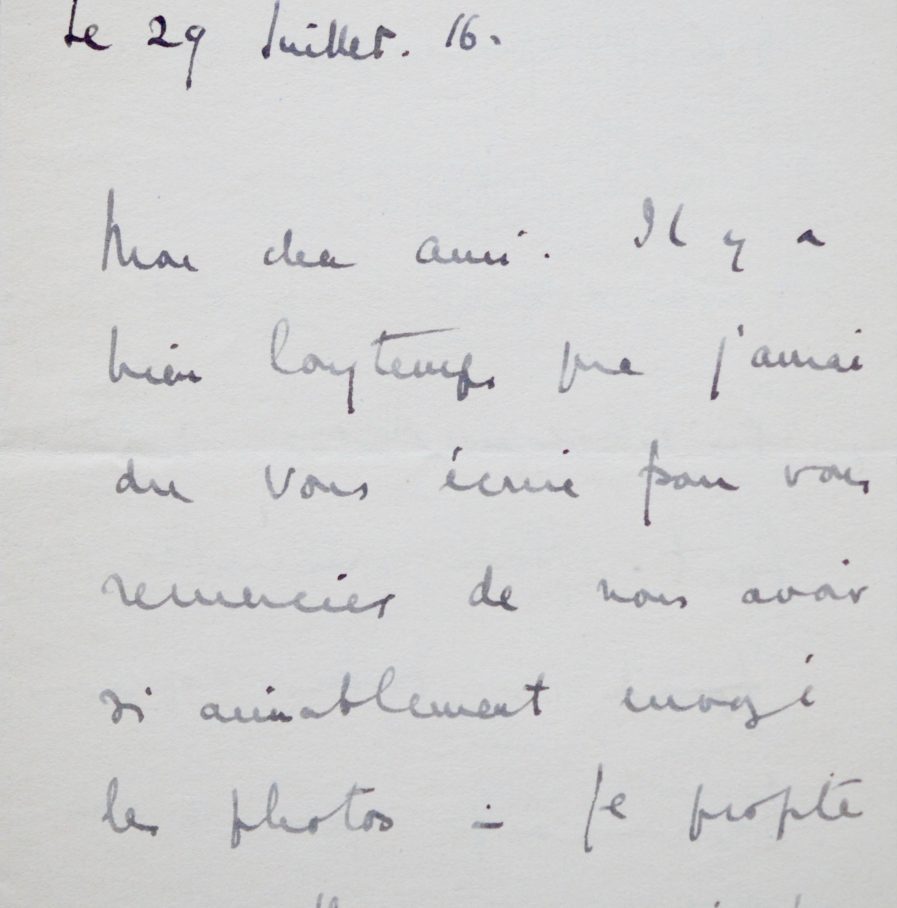 Le 29 Juillet. 16.
Mon cher ami. Il y a
bien longtemps que j'aurai
du vous écrire pour vous
remercier de nous avoir
si aimablement envoyé
les photos - Je profite